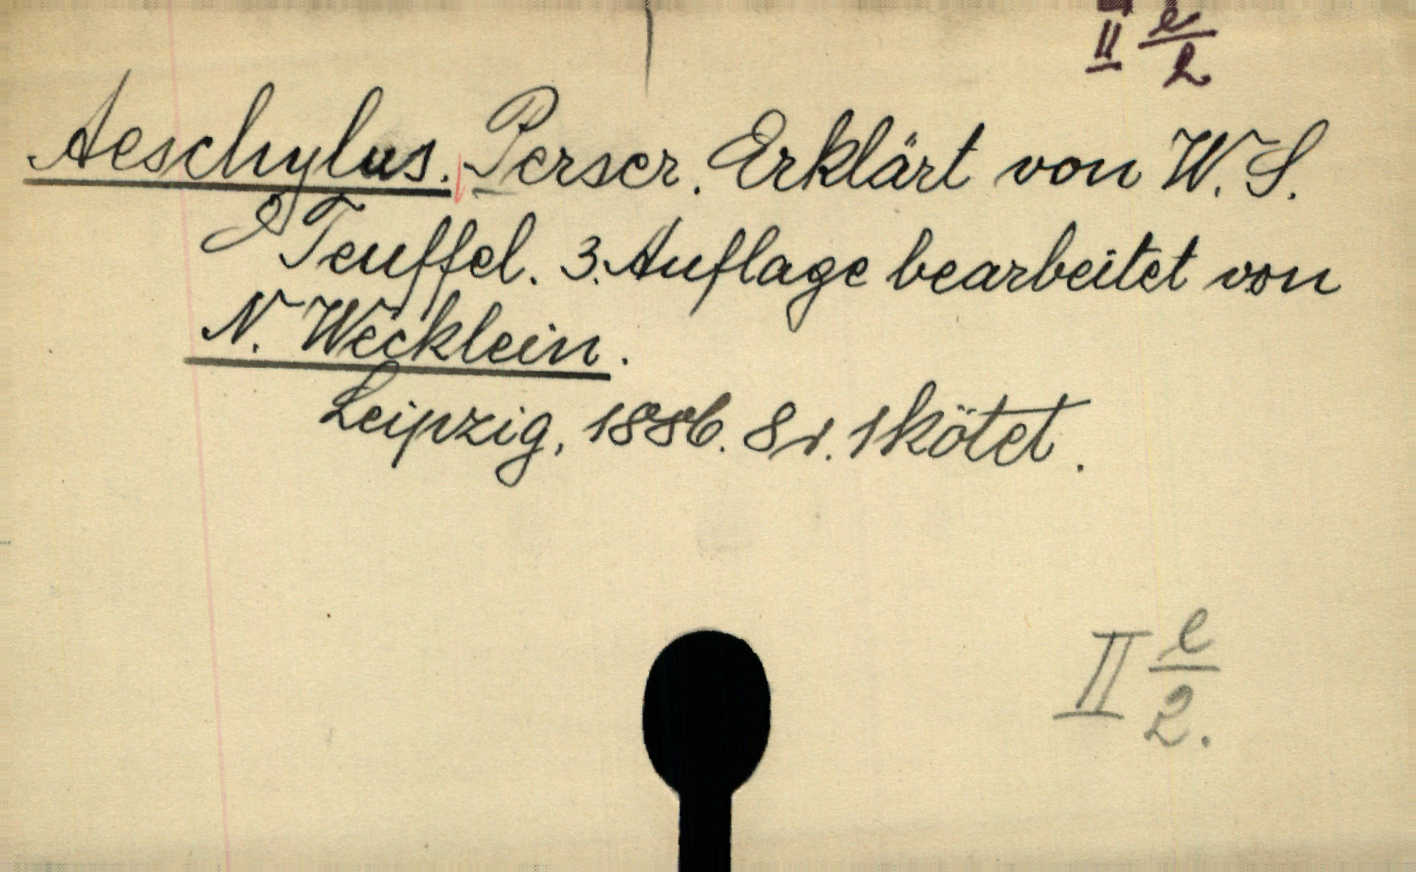 II e/2
Aeschylus. Perser. Erklärt von W. S.
Teuffel. 3. Auflage bearbeitet von
N. Wecklein.
Leipzig, 1886. 8r. 1 kötet.
II e/2.